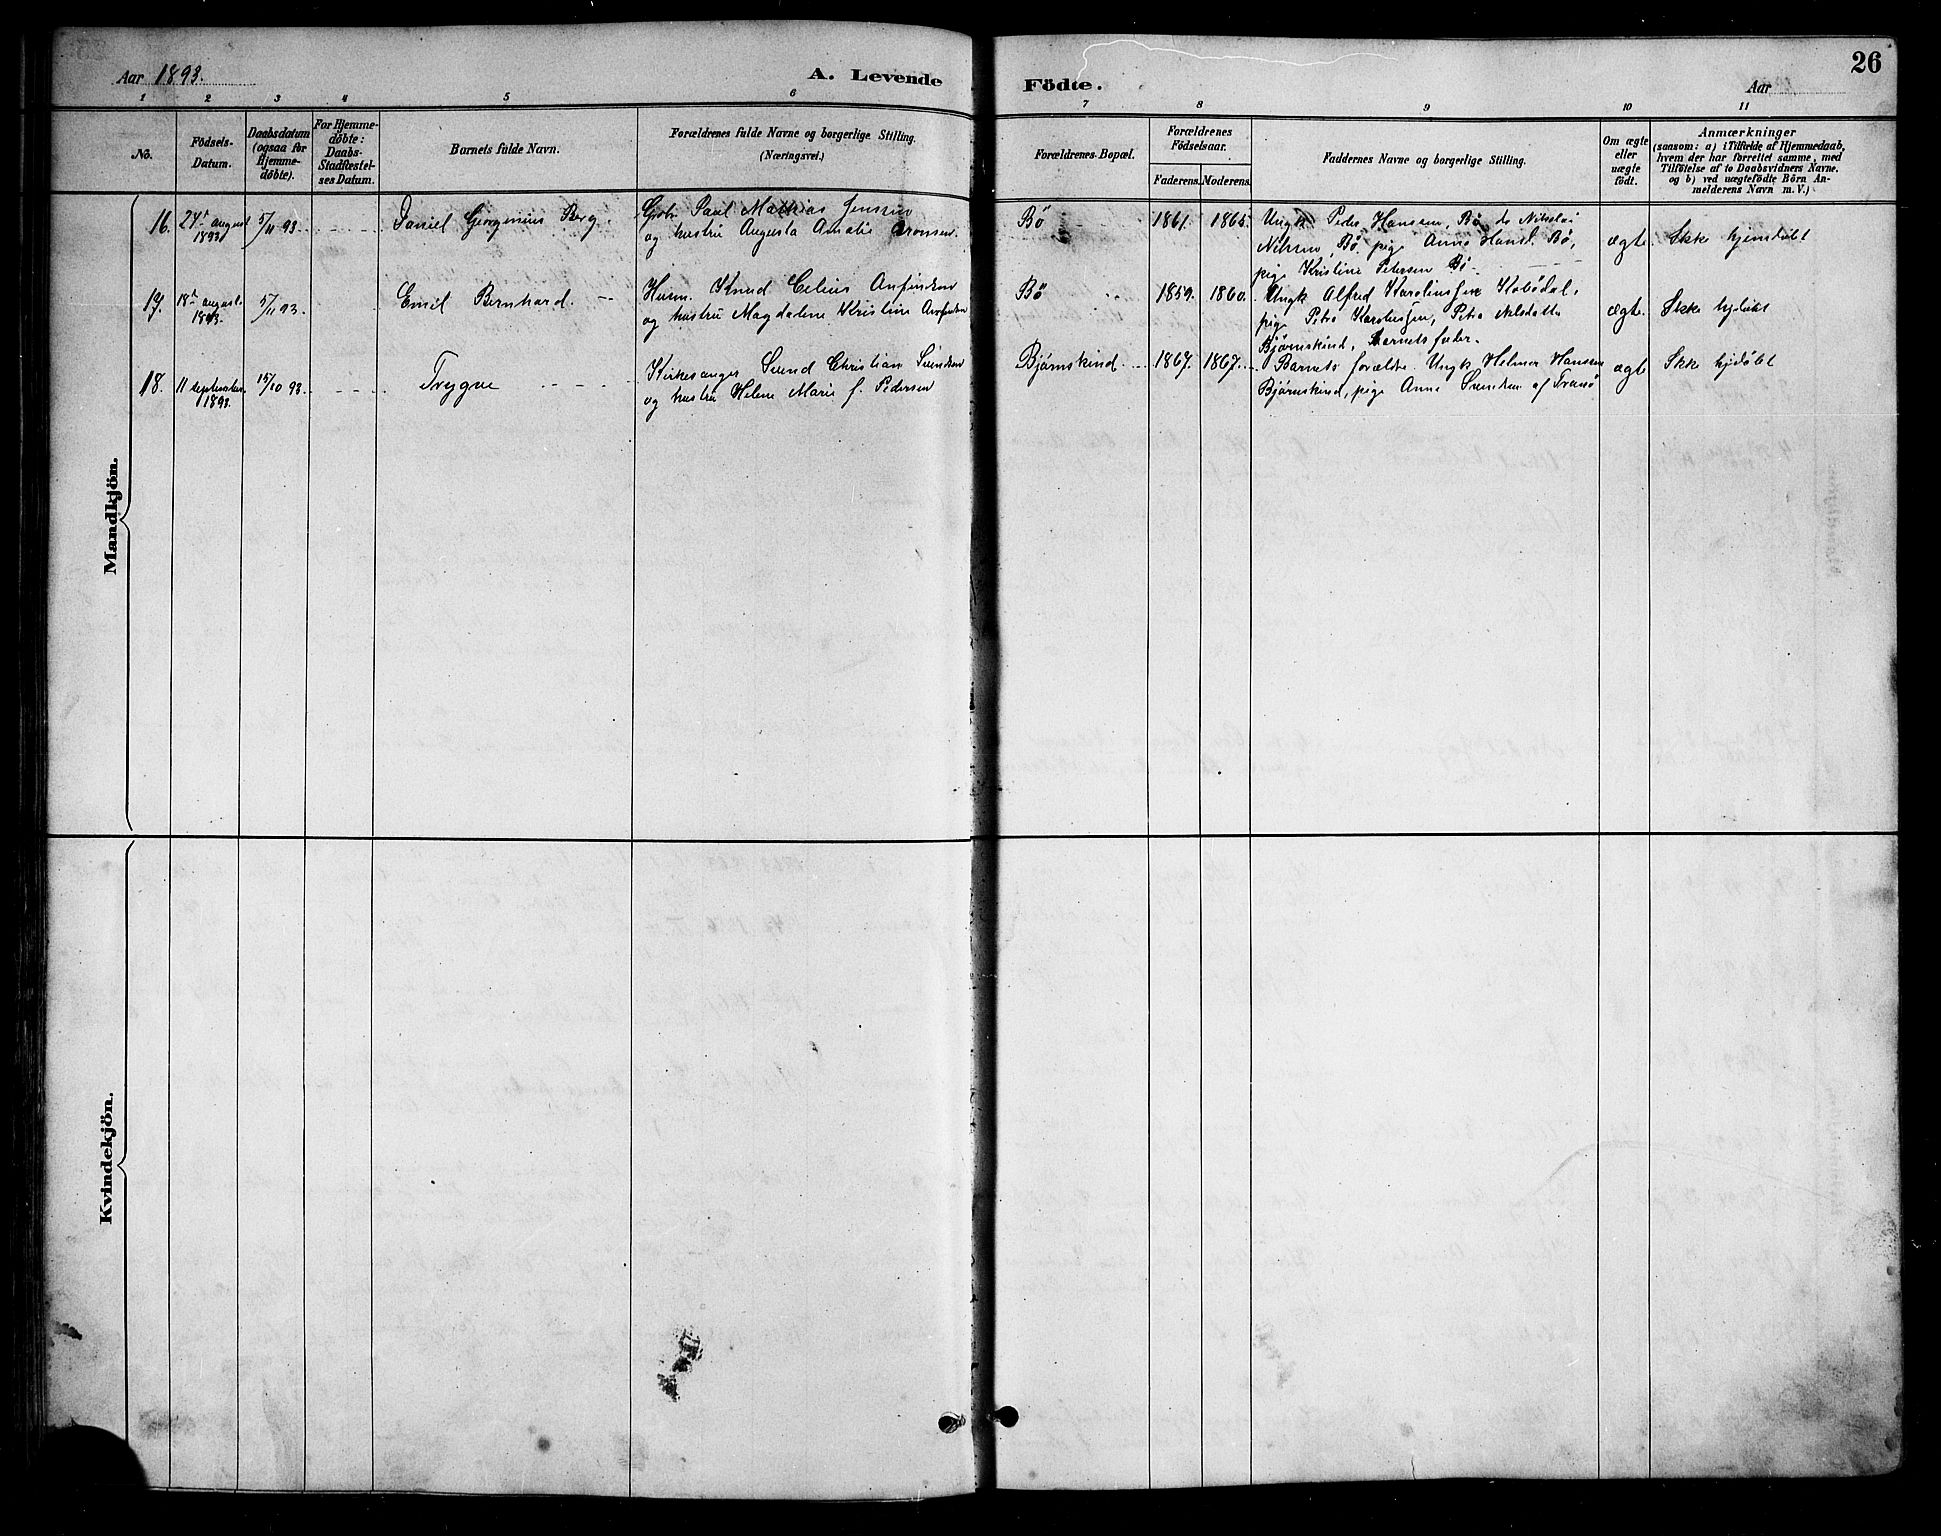 Aar 1893.
A. Levende Födte.
Aar
26
1 2 3 4 5 6 7 8 9 10 11
No.
Födsels-
Datum.
Daabsdatum
(ogsaa for
Hjemme-
döbte).
For Hjemme-
döbte:
Daabs-
Stadfæstel-
ses Datum.
Barnets fulde Navn.
Forældrenes fulde Navne og borgerlige Stilling.
(Næringsvei.)
Forældrenes Bopæl.
Forældrenes
Födselsaar.
Faderens. Moderens.
Faddernes Navne og borgerlige Stilling.
Om ægte
eller
uægte
födt.
Anmærkninger
(saasom: a) i Tilfælde af Hjemmedaab,
hvem der har forrettet samme, med
Tilföielse af to Daabsvidners Navne,
og b) ved uægtefödte Börn An-
melderens Navn m. V.)
Mandkjön.
16.
august
1893
5/11 93.
Daniel Georgenius Berg
Paul Mathias Jenssen
og hustru Augusta Amalie
Bö
1861. 1865.
Ungk Peder Hansen, Bö, do Nikolai
Nilsen, Bö, pige Anne Hansd. Bö,
pige Kristine Petersen Bö
ægte
Ikke hjemdöbt
17.
18de august
1893
5/11 93.
Emil Bernhard
Husm. Knud Celius
og hustru Magdalene Kristine
Bö
1859. 1860.
Ungk Alfred
pige Petra
Björnskind, Barnets fader.
ægte.
Ikke
18.
11 september
1893.
15/10 93.
Trygve
Kirkesanger Svend Christian
og hustru Helene Marie f. Pedersen
Björnskind
1867. 1867.
Barnets forældre. Ungk Helmer Hansen
Björnskind, pige Anne af Tranö
ægte
Ikke hjdöbt
Kvindekjön.